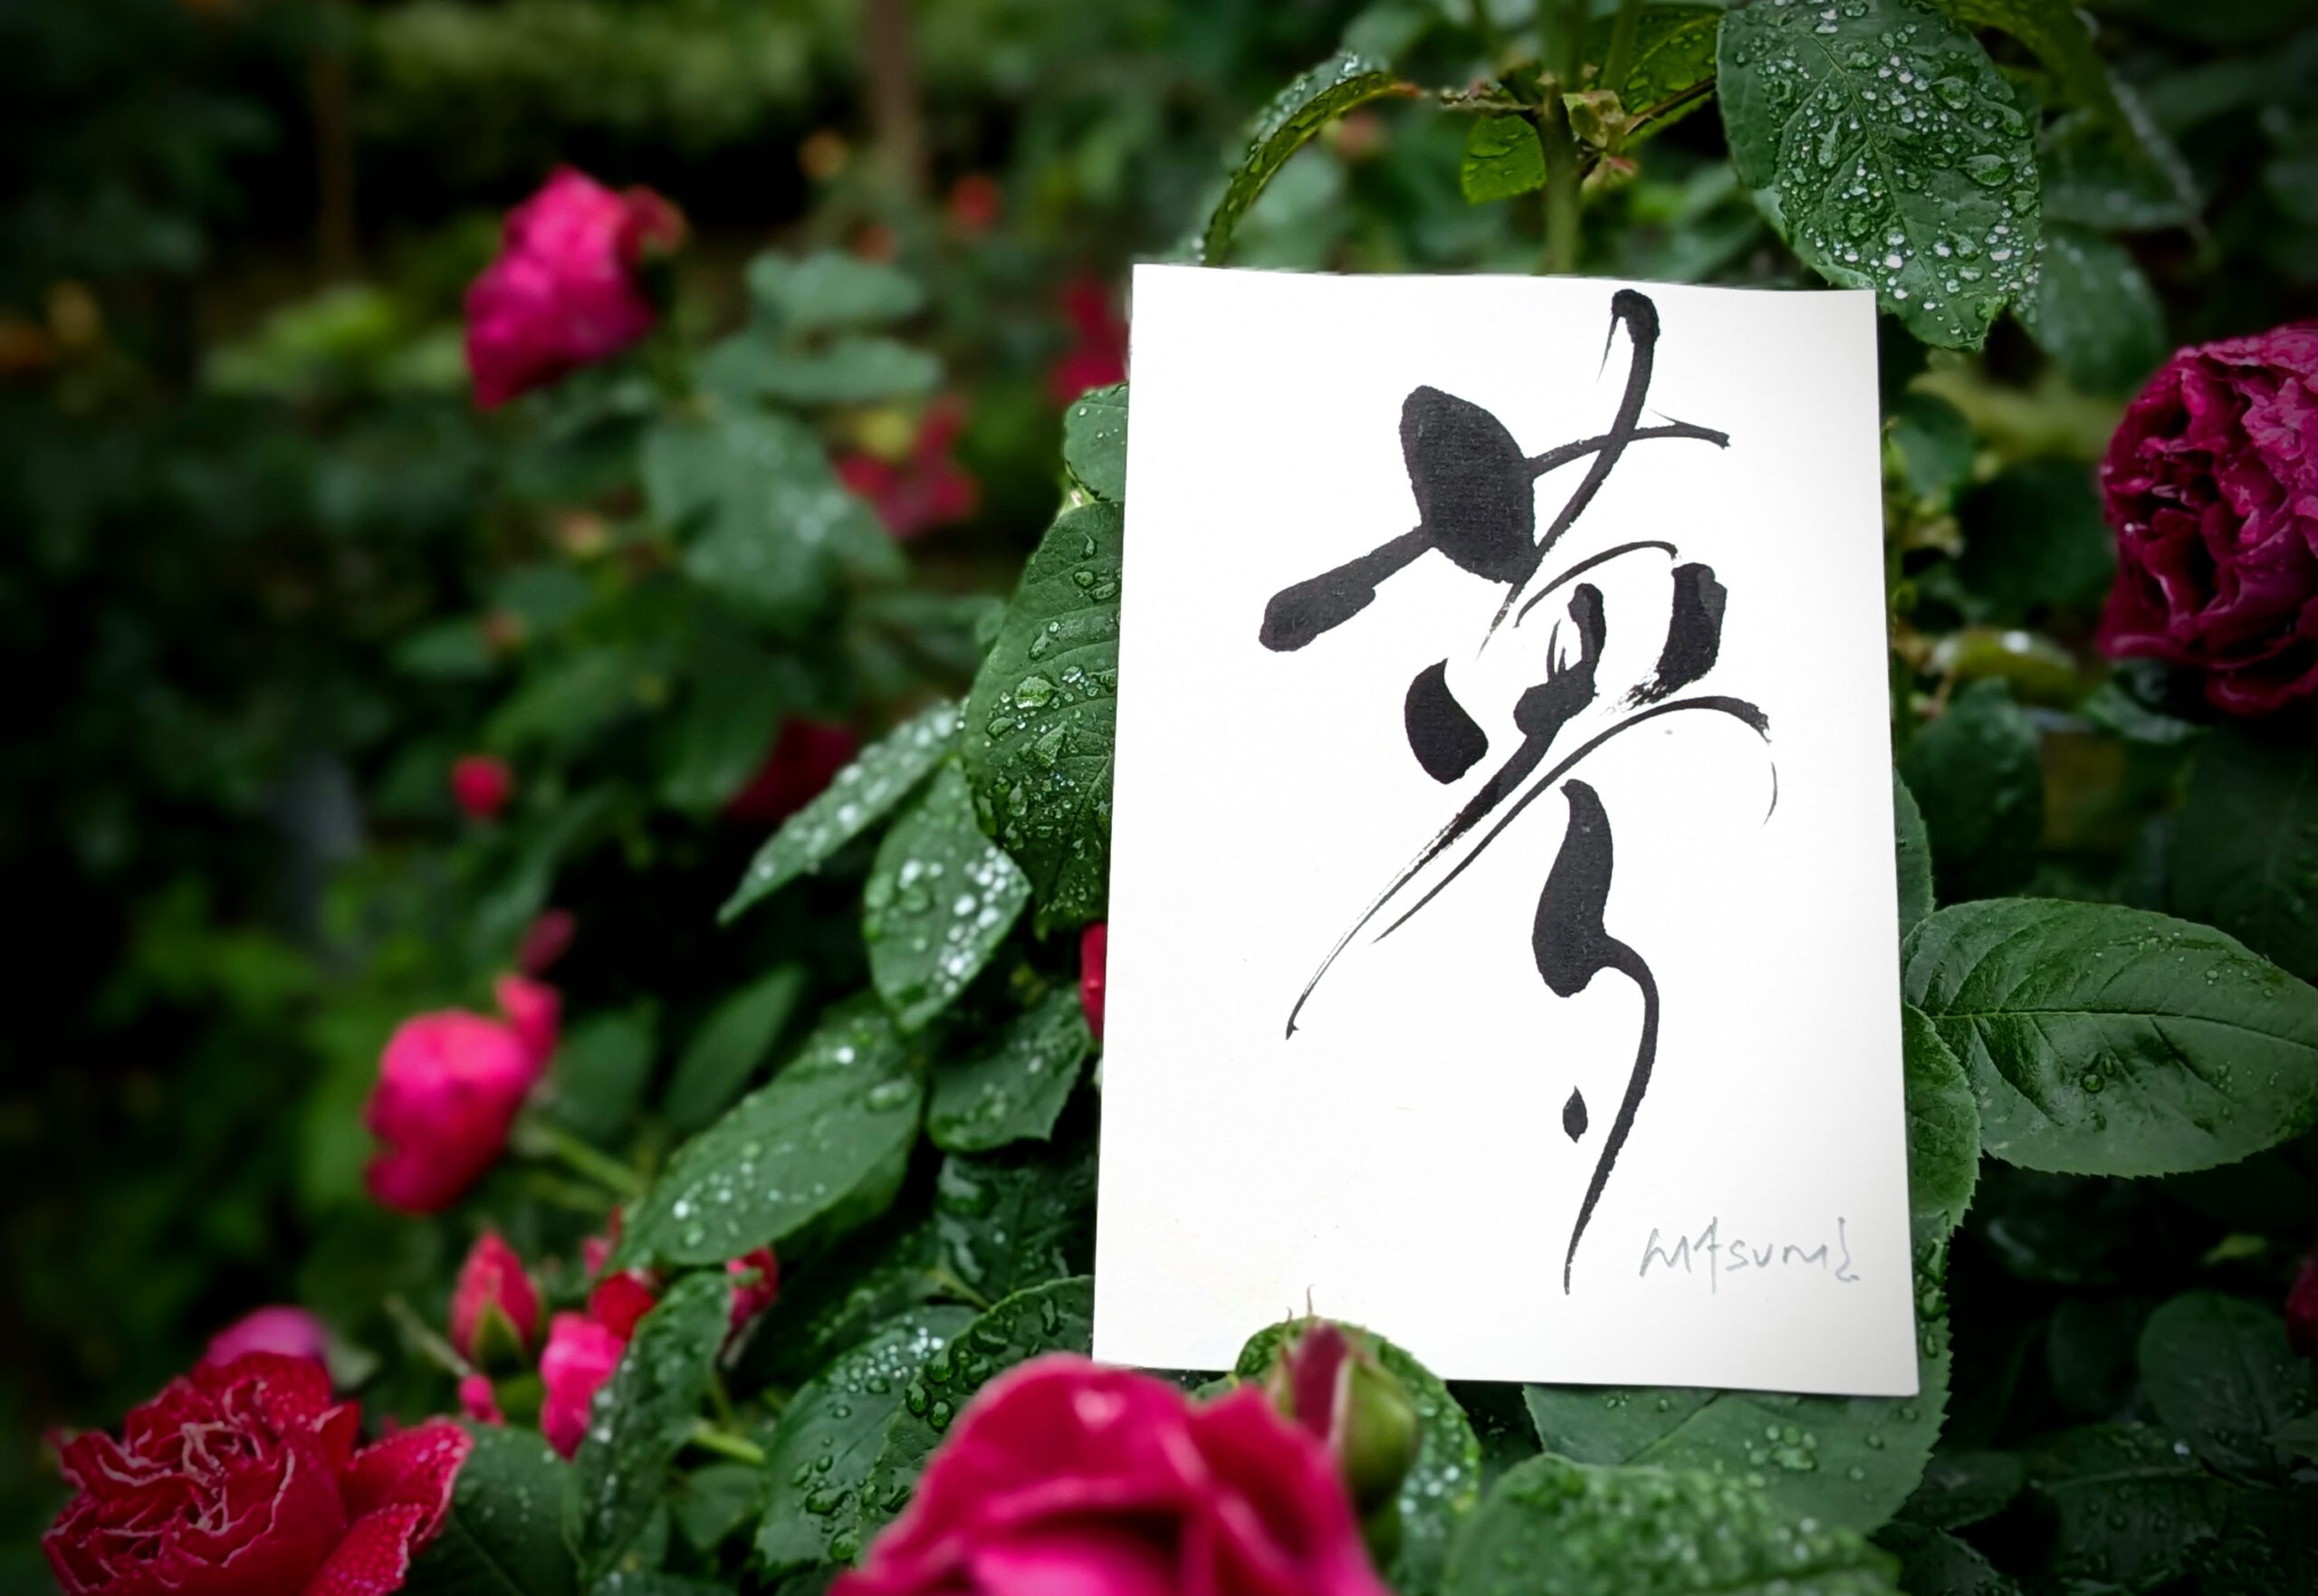 夢
MAsumi